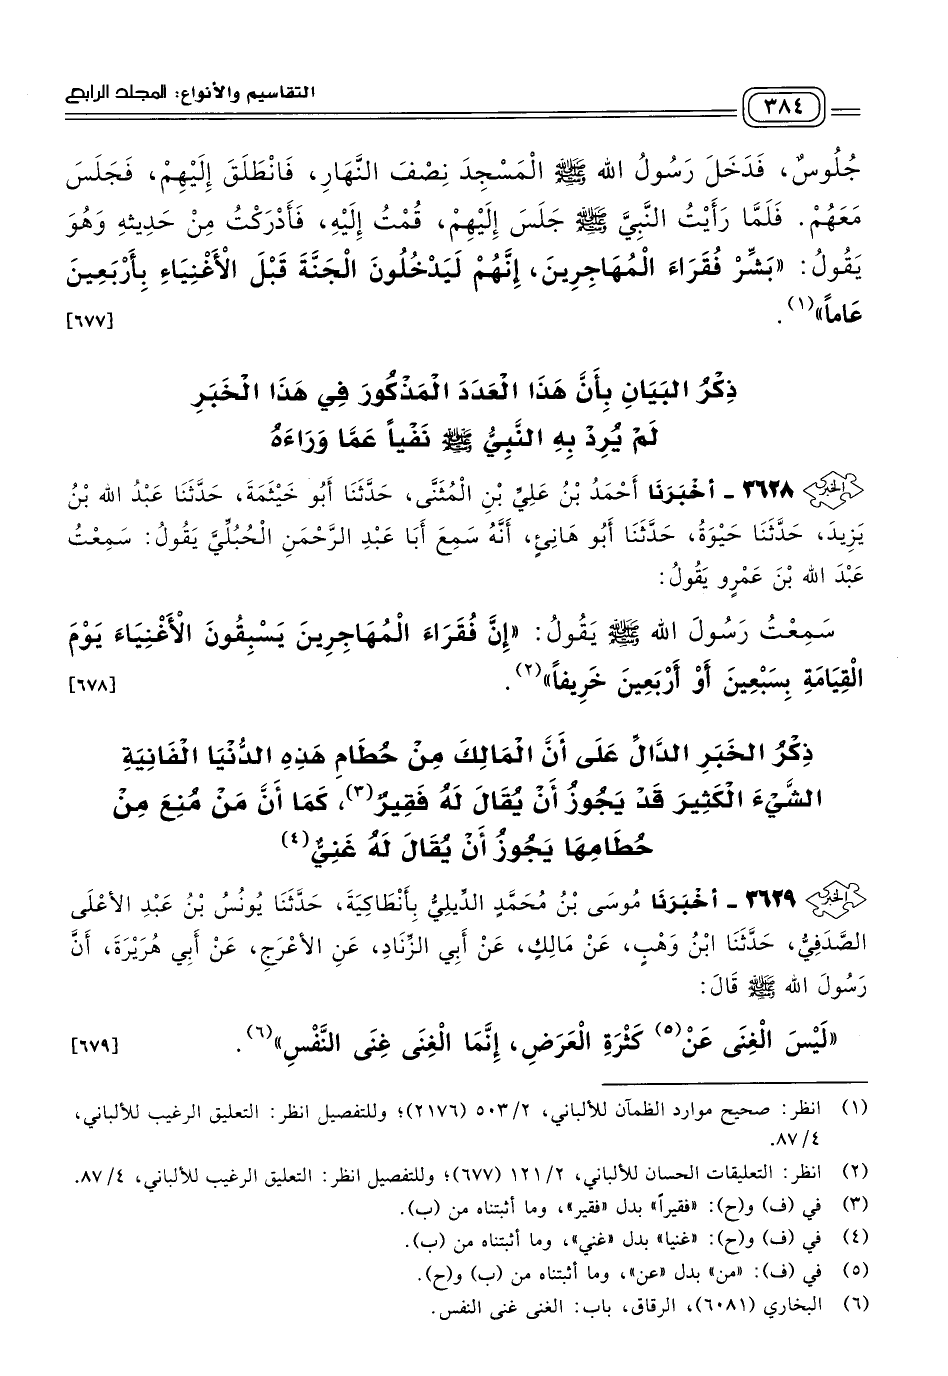 التقاسيم والأنواع: المجلد الرابع
٣٨٤
جُلُوسٌ، فَدَخَلَ رَسُولُ الله ﷺ الْمَسْجِدَ نِصْفَ النَّهَارِ، فَانْطَلَقَ إِلَيْهِمْ، فَجَلَسَ
مَعَهُمْ. فَلَمَّا رَأَيْتُ النَّبِيَّ ﷺ جَلَسَ إِلَيْهِمْ، قُمْتُ إِلَيْهِ، فَأَدْرَكْتُ مِنْ حَدِيثِهِ وَهُوَ
يَقُولُ: «بَشِّرْ فُقَرَاءَ الْمُهَاجِرِينَ، إِنَّهُمْ لَيَدْخُلُونَ الْجَنَّةَ قَبْلَ الْأَغْنِيَاءِ بِأَرْبَعِينَ
عَاماً»(١). [٦٧٧]
ذِكْرُ البَيَانِ بِأَنَّ هَذَا الْعَدَدَ الْمَذْكُورَ فِي هَذَا الْخَبَرِ
لَمْ يُرِدْ بِهِ النَّبِيُّ ﷺ نَفْياً عَمَّا وَرَاءَهُ
الخبر ٣٦٢٨ - أخْبَرَنَا أَحْمَدُ بْنُ عَلِيِّ بْنِ الْمُثَنَّى، حَدَّثَنَا أَبُو خَيْثَمَةَ، حَدَّثَنَا عَبْدُ الله بْنُ
يَزِيدَ، حَدَّثَنَا حَيْوَةُ، حَدَّثَنَا أَبُو هَانِئٍ، أَنَّهُ سَمِعَ أَبَا عَبْدِ الرَّحْمَنِ الْحُبُلِّيَّ يَقُولُ: سَمِعْتُ
عَبْدَ الله بْنَ عَمْرٍو يَقُولُ:
سَمِعْتُ رَسُولَ الله ﷺ يَقُولُ: «إِنَّ فُقَرَاءَ الْمُهَاجِرِينَ يَسْبِقُونَ الْأَغْنِيَاءَ يَوْمَ
الْقِيَامَةِ بِسَبْعِينَ أَوْ أَرْبَعِينَ خَرِيفاً»(٢). [٦٧٨]
ذِكْرُ الخَبَرِ الدَّالِّ عَلَى أَنَّ الْمَالِكَ مِنْ حُطَامِ هَذِهِ الدُّنْيَا الْفَانِيَةِ
الشَّيْءَ الْكَثِيرَ قَدْ يَجُوزُ أَنْ يُقَالَ لَهُ فَقِيرٌ(٣)، كَمَا أَنَّ مَنْ مُنِعَ مِنْ
حُطَامِهَا يَجُوزُ أَنْ يُقَالَ لَهُ غَنِيٌّ(٤)
الخبر ٣٦٢٩ - أخْبَرَنَا مُوسَى بْنُ مُحَمَّدٍ الدِّيلِيُّ بِأَنْطَاكِيَةَ، حَدَّثَنَا يُونُسُ بْنُ عَبْدِ الأعْلَى
الصَّدَفِيُّ، حَدَّثَنَا ابْنُ وَهْبٍ، عَنْ مَالِكٍ، عَنْ أَبِي الزِّنَادِ، عَنِ الأعْرَجِ، عَنْ أَبِي هُرَيْرَةَ، أَنَّ
رَسُولَ الله ﷺ قَالَ:
«لَيْسَ الْغِنَى عَنْ(٥) كَثْرَةِ الْعَرَضِ، إِنَّمَا الْغِنَى غِنَى النَّفْسِ»(٦). [٦٧٩]
(١) انظر: صحيح موارد الظمآن للألباني، ٥٠٣/٢ (٢١٧٦)؛ وللتفصيل انظر: التعليق الرغيب للألباني،
٨٧/٤.
(٢) انظر: التعليقات الحسان للألباني، ١٢١/٢ (٦٧٧)؛ وللتفصيل انظر: التعليق الرغيب للألباني، ٨٧/٤.
(٣) في (ف) و(ح): «فقيراً» بدل «فقير»، وما أثبتناه من (ب).
(٤) في (ف) و(ح): «غنيا» بدل «غني»، وما أثبتناه من (ب).
(٥) في (ف): «من» بدل «عن»، وما أثبتناه من (ب) و(ح).
(٦) البخاري (٦٠٨١)، الرقاق، باب: الغنى غنى النفس.